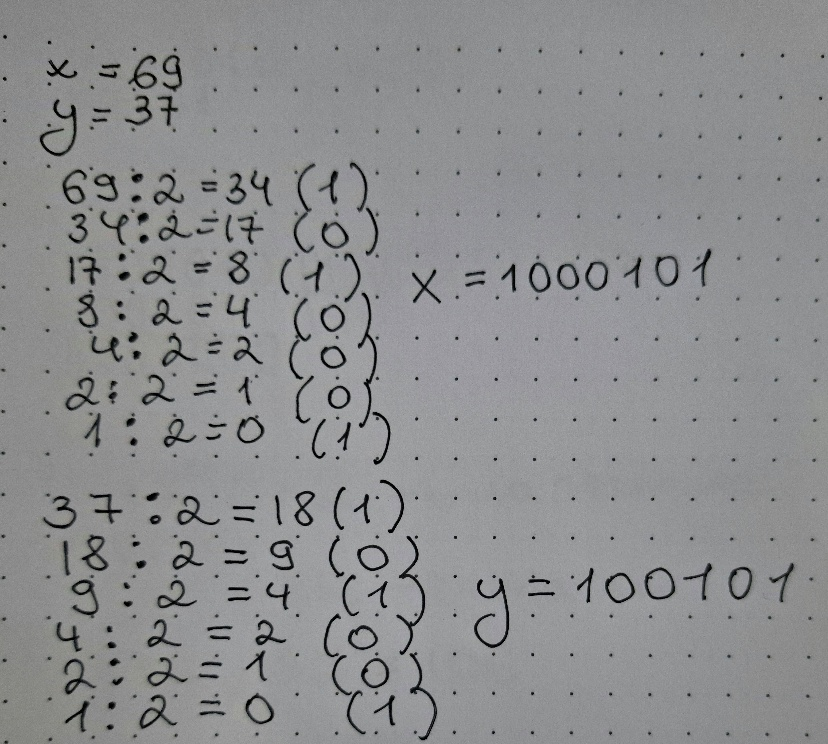 x = 69
y = 37
69:2 = 34 (1)
34:2 = 17 (0)
17:2 = 8 (1)
8:2 = 4 (0)
4:2 = 2 (0)
2:2 = 1 (0)
1:2 = 0 (1)
x = 1000101
37:2 = 18 (1)
18:2 = 9 (0)
9:2 = 4 (1)
4:2 = 2 (0)
2:2 = 1 (0)
1:2 = 0 (1)
y = 100101